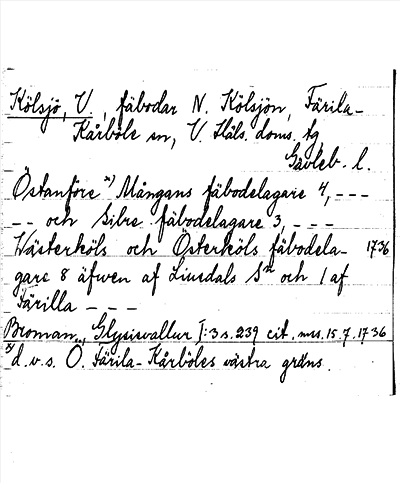 Kölsjö, V, fäbodar N. Kölsjön, Färila-
Kårböle sn, V. Häls. doms. tg
Gävleb. l.
Östanföre x) Mångans fäbodelagare 4, ---
-- och Sibre fäbodelagare 3, ---
Wästerköls och Österköls fäbodela- 1736
gare 8 äfwen af Liusdals Sn och 1 af
Färilla ---
Broman, Glysisvallur I:3 s. 239 cit. mss. 15.7.1736
x) d.v.s. Ö. Färila-Kårböles västra gräns.